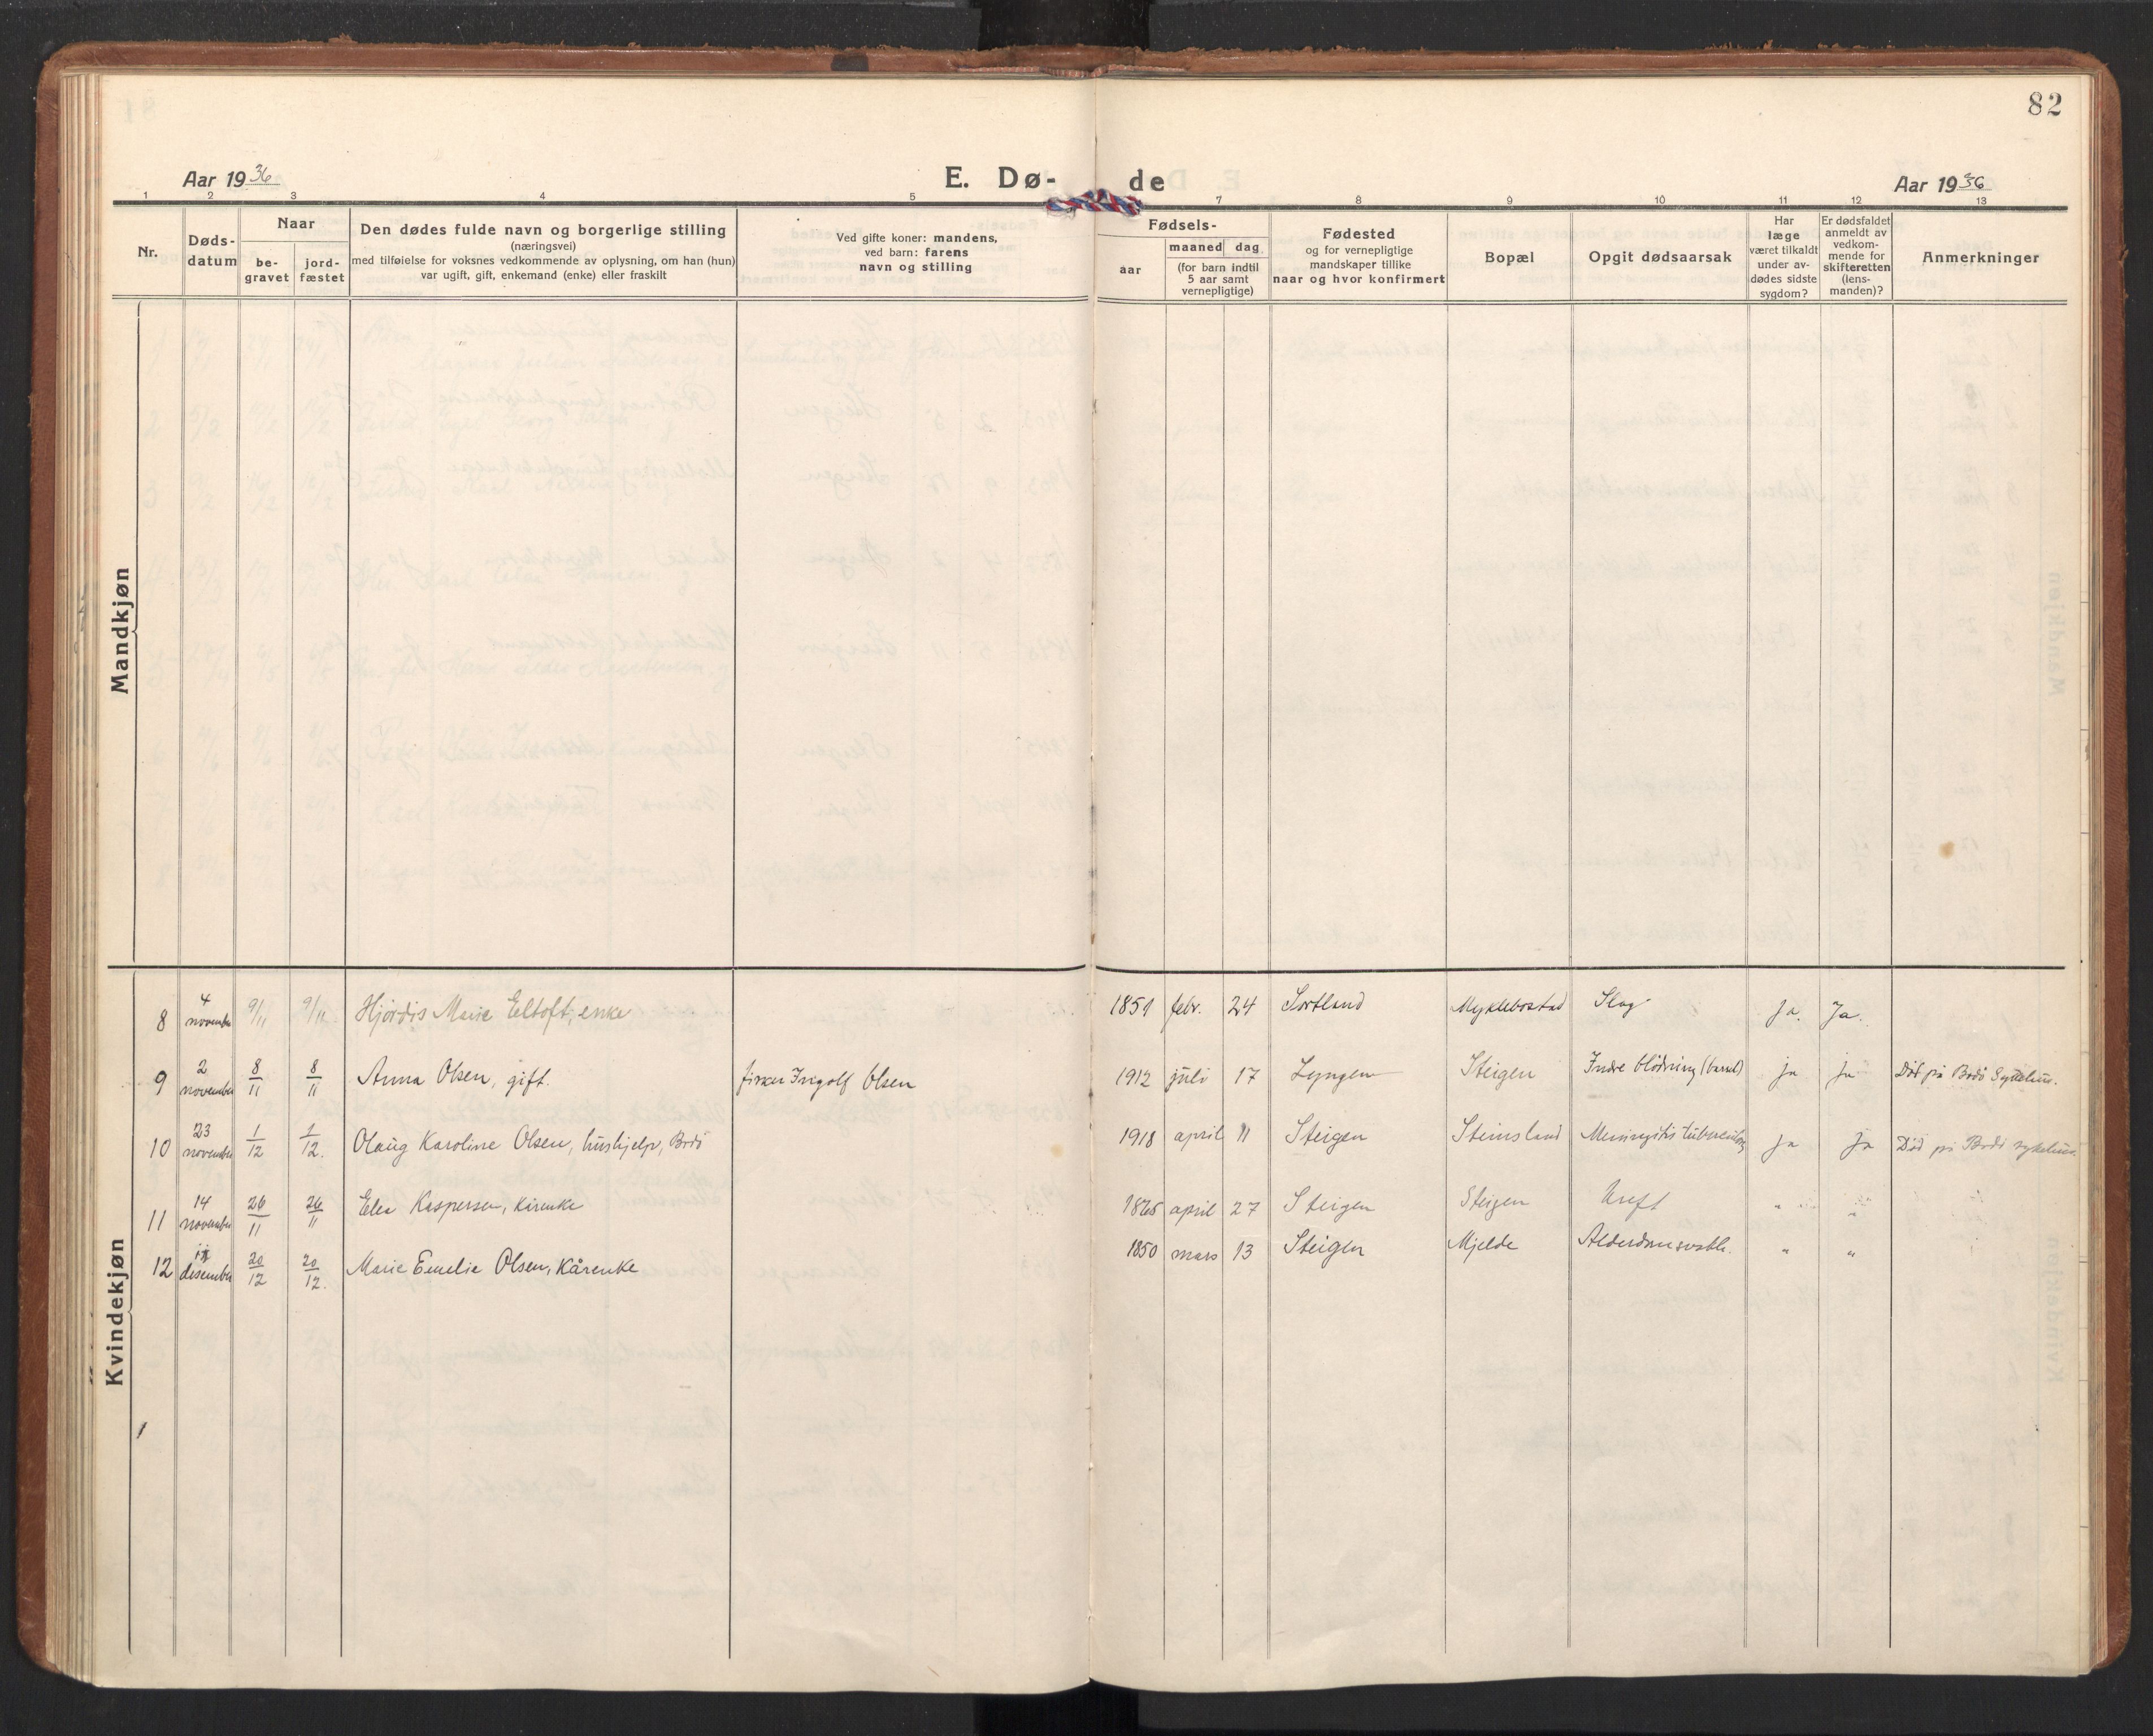 82
Aar 1936
E. Dø-
de
Aar 1936
1 2 3 4 5 7 8 9 10 11 12 13
Nr.
Døds-
datum
Naar
be-
gravet
jord-
fæstet
Den dødes fulde navn og borgerlige stilling
(næringsvei)
med tilføielse for voksnes vedkommende av oplysning, om han (hun)
var ugift, gift, enkemand (enke) eller fraskilt
Ved gifte koner: mandens,
ved barn: farens
navn og stilling
Fødsels-
aar
maaned dag
(for barn indtil
5 aar samt
vernepligtige)
Fødested
og for vernepligtige
mandskaper tillike
naar og hvor konfirmert
Bopæl
Opgit dødsaarsak
Har
læge
været tilkaldt
under av-
dødes sidste
sygdom?
Er dødsfaldet
anmeldt av
vedkom-
mende for
skifteretten
(lens-
manden)?
Anmerkninger
Mandkjøn
Kvindekjøn
8 4 november 9/11 9/11 Hjördis Marie Eltoft, enke 1851 febr. 24 Sortland Myklebostad Slag Ja. Ja.
9 2 november 8/11 8/11 Anna Olsen, gift. fisker Ingolf Olsen 1912 juli 17 Lyngen Steigen Indre blödning (barsel) ja ja Död på Bodö Sykehus.
10 23 november 1/12 1/12. Olaug Karoline Olsen, hushjelp, Bodö 1918 april 11 Steigen Steinsland Meningitis tuberculosa ja ja Död på Bodö sykehus.
11 14 november 26/11 26/11 Elea Kaspersen, kårenke 1865 april 27 Steigen Steigen Kreft " "
12 desember 20/12 20/12. Marie Emelie Olsen, Kårenke 1850 mars 13 Steigen Mjelde " "